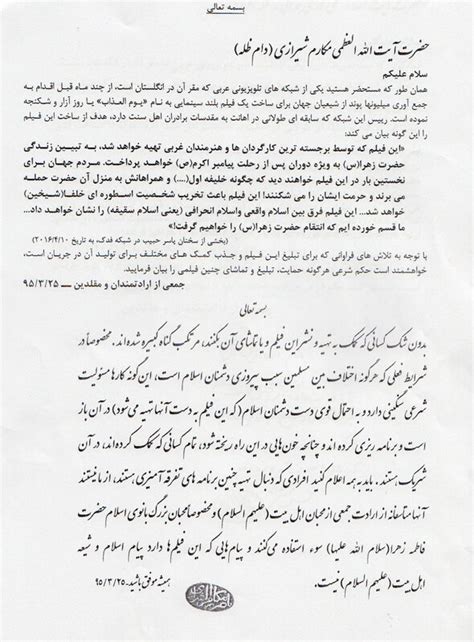 بسمه تعالی
حضرت آیت الله العظمی مکارم شیرازی (دام ظله)
سلام علیکم
همان طور که مستحضر هستید یکی از شبکه های تلویزیونی عربی که مقر آن در انگلستان است، از چند ماه قبل اقدام به
جمع آوری میلیونها پوند از شیعیان جهان برای ساخت یک فیلم بلند سینمایی به نام «یوم العذاب» یا روز آزار و شکنجه
نموده است. رییس این شبکه که سابقه ای طولانی در اهانت به مقدسات برادران اهل سنت دارد، هدف از ساخت این فیلم
را این گونه بیان می کند:
«این فیلم که توسط برجسته ترین کارگردان ها و هنرمندان غربی تهیه خواهد شد، به تبیین زندگی
حضرت زهرا(س) به ویژه دوران پس از رحلت پیامبر اکرم(ص) خواهد پرداخت. مردم جهان برای
نخستین بار در این فیلم خواهند دید که چگونه خلیفه اول(....) و همراهانش به منزل آن حضرت حمله
می برند و حرمت ایشان را می شکنند! این فیلم باعث تخریب شخصیت اسطوره ای خلفا(شیخین)
خواهد شد... این فیلم فرق بین اسلام واقعی واسلام انحرافی (یعنی اسلام سقیفه) را نشان خواهد داد...
ما قسم خورده ایم که انتقام حضرت زهرا(س) را خواهیم گرفت!»
(بخشی از سخنان یاسر حبیب در شبکه فدک، به تاریخ ۲۰۱۶/۴/۱۰)
با توجه به تلاش های فراوانی که برای تبلیغ این فیلم و جذب کمک های مختلف برای تولید آن در جریان است،
خواهشمند است حکم شرعی هرگونه حمایت، تبلیغ و تماشای چنین فیلمی را بیان فرمایید.
جمعی از ارادتمندان و مقلدین ـ ۹۵/۳/۲۵
بسمه تعالی
بدون شک کسانی که کمک به تهیه و نشر این فیلم و یا تماشای آن بکنند، مرتکب گناه کبیره شده اند. مخصوصاً در
شرایط فعلی که هرگونه اختلاف بین مسلمین سبب پیروزی دشمنان اسلام است، این گونه کارها مسئولیت
شرعی سنگینی دارد و به احتمال قوی دست دشمنان اسلام (که این فیلم به دست آنها تهیه می شود) در آن باز
است و برنامه ریزی کرده اند و چنانچه خون هایی در این راه ریخته شود، تمام کسانی که کمک کرده اند، در آن
شریک هستند. باید به همه اعلام کنید افرادی که دنبال تهیه چنین برنامه های تفرقه آمیزی هستند، از ما نیستند
آنها متأسفانه از ارادت جمعی از محبان اهل بیت (علیهم السلام) و مخصوصاً محبان بزرگ بانوی اسلام حضرت
فاطمه زهرا (سلام الله علیها) سوء استفاده می کنند و پیام هایی که این فیلم ها دارد پیام اسلام و شیعه
اهل بیت (علیهم السلام) نیست.
همیشه موفق باشید. ۹۵/۳/۲۵